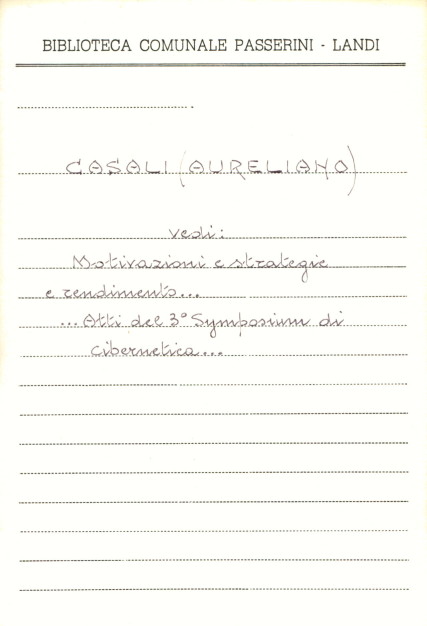 BIBLIOTECA COMUNALE PASSERINI - LANDI
CASALI (AURELIANO)
vedi:
Motivazioni e strategie
e rendimento...
...Atti del 3° Symposium di
cibernetica...